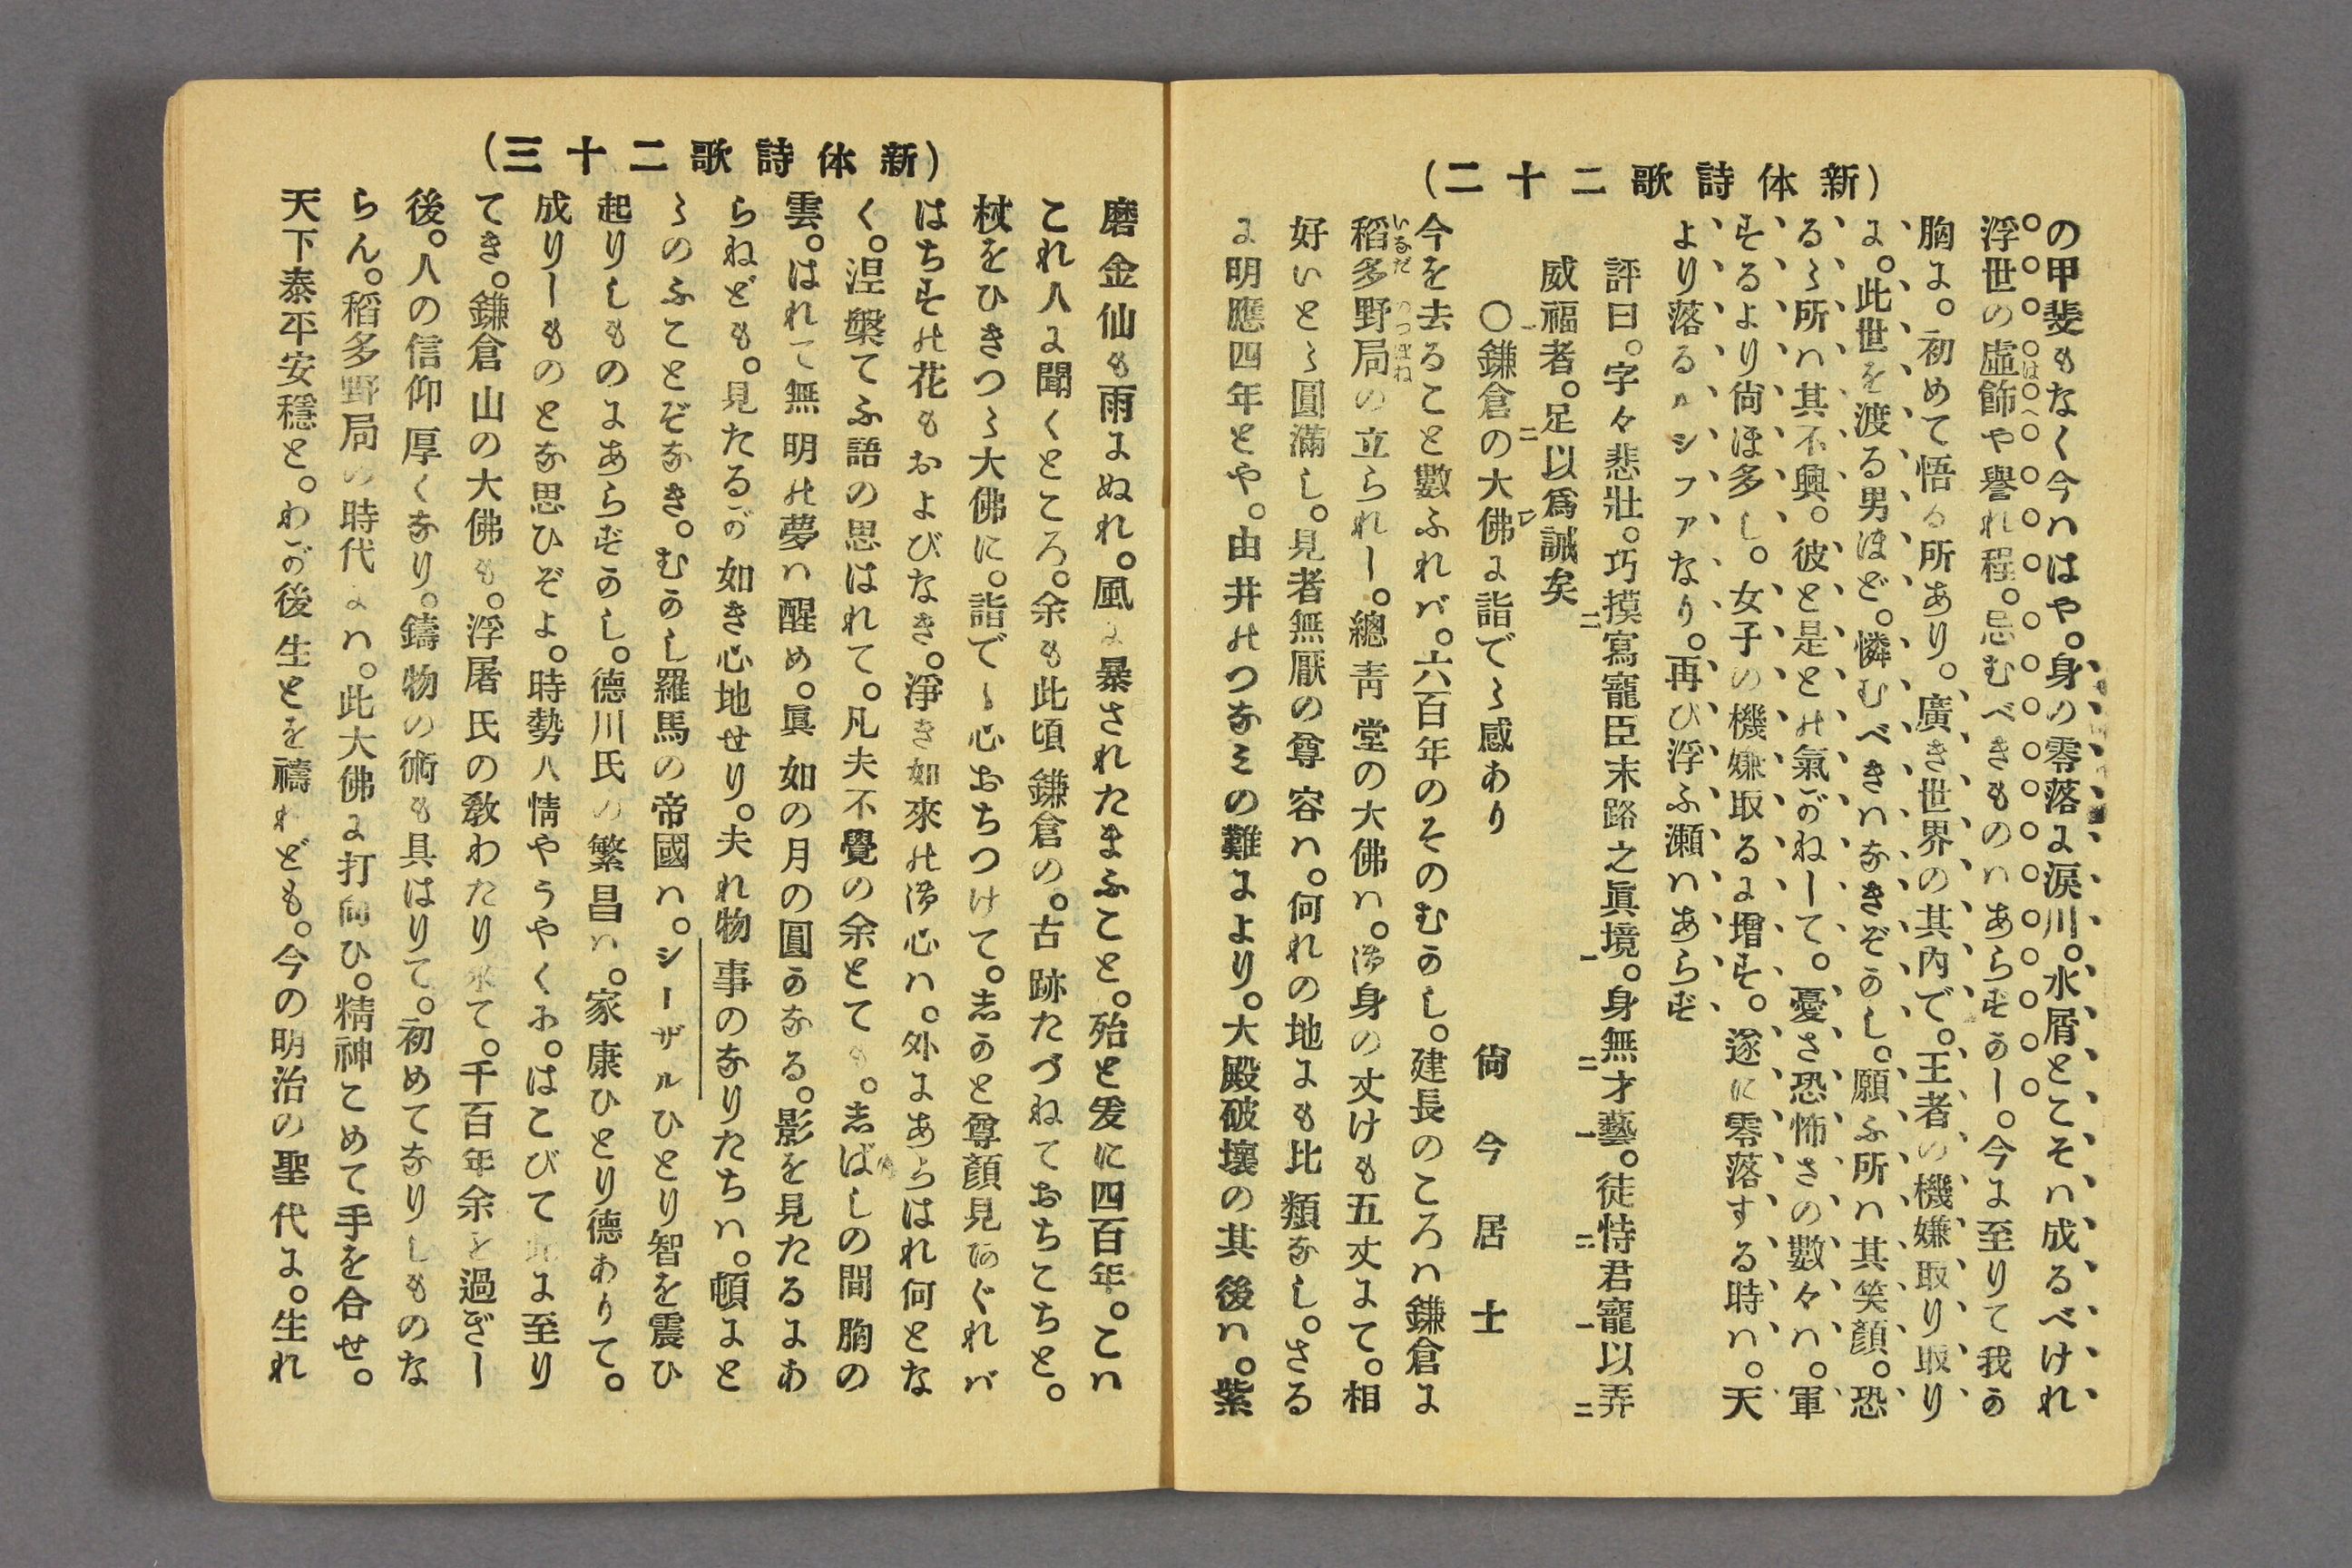 (新体詩歌二十二)
の甲斐もなく今ハはや。身の零落に涙川。水屑とこそハ成るべけれ
浮世の虚飾や譽れ程。忌むべきものハあらずかし。今に至りて我か
胸に。初めて悟る所あり。廣き世界の其内で。王者の機嫌取り取り
に。此世を渡る男ほど。憐むべきハなきぞかし。願ふ所ハ其笑顏。恐
るゝ所ハ其不興。彼と是との氣がねして。憂さ恐怖さの數々ハ。軍
するより尙ほ多し。女子の機嫌取るに增す。遂に零落する時ハ。天
より落るルシファなり。再び浮ふ瀬ハあらず
評曰。字々悲壯。巧摸寫寵臣末路之眞境。身無才藝。徒恃君寵以弄
威福者。足以爲誡矣
〇鎌倉の大佛に詣でゝ感あり
尙今居士
今を去ること數ふれバ。六百年のそのむかし。建長のころハ鎌倉に
稻多野局の立られし。總靑堂の大佛ハ。御身の丈けも五丈にて。相
好いとゝ圓滿し。見者無厭の尊容ハ。何れの地にも比類なし。さる
に明應四年とや。由井のつなミの難により。大殿破壞の其後ハ。紫
(新体詩歌二十三)
磨金仙も雨にぬれ。風に暴されたまふこと。殆と爰に四百年。こハ
これ人に聞くところ。余も此頃鎌倉の。古跡たづねておちこちと。
杖をひきつゝ大佛に。詣でゝ心おちつけて。志かと尊顏見あぐれバ
はちすの花もおよびなき。淨き如來の御心ハ。外にあらはれ何とな
く。涅槃てふ語の思はれて。凡夫不覺の余とても。志ばしの間胸の
雲。はれて無明の夢ハ醒め。眞如の月の圓かなる。影を見たるにあ
らねども。見たるが如き心地せり。夫れ物事のなりたちハ。頓にと
ゝのふことぞなき。むかし羅馬の帝國ハ。シーザルひとり智を震ひ
起りしものにあらずかし。德川氏の繁昌ハ。家康ひとり德ありて。
成りしものとな思ひぞよ。時勢人情やうやくに。はこびて此に至り
てき。鎌倉山の大佛も。浮屠氏の敎わたり來て。千百年余を過ぎし
後。人の信仰厚くなり。鑄物の術も具はりて。初めてなりしものな
らん。稻多野局の時代にハ。此大佛に打向ひ。精神こめて手を合せ。
天下泰平安穩と。わが後生とを禱れども。今の明治の聖代に。生れ